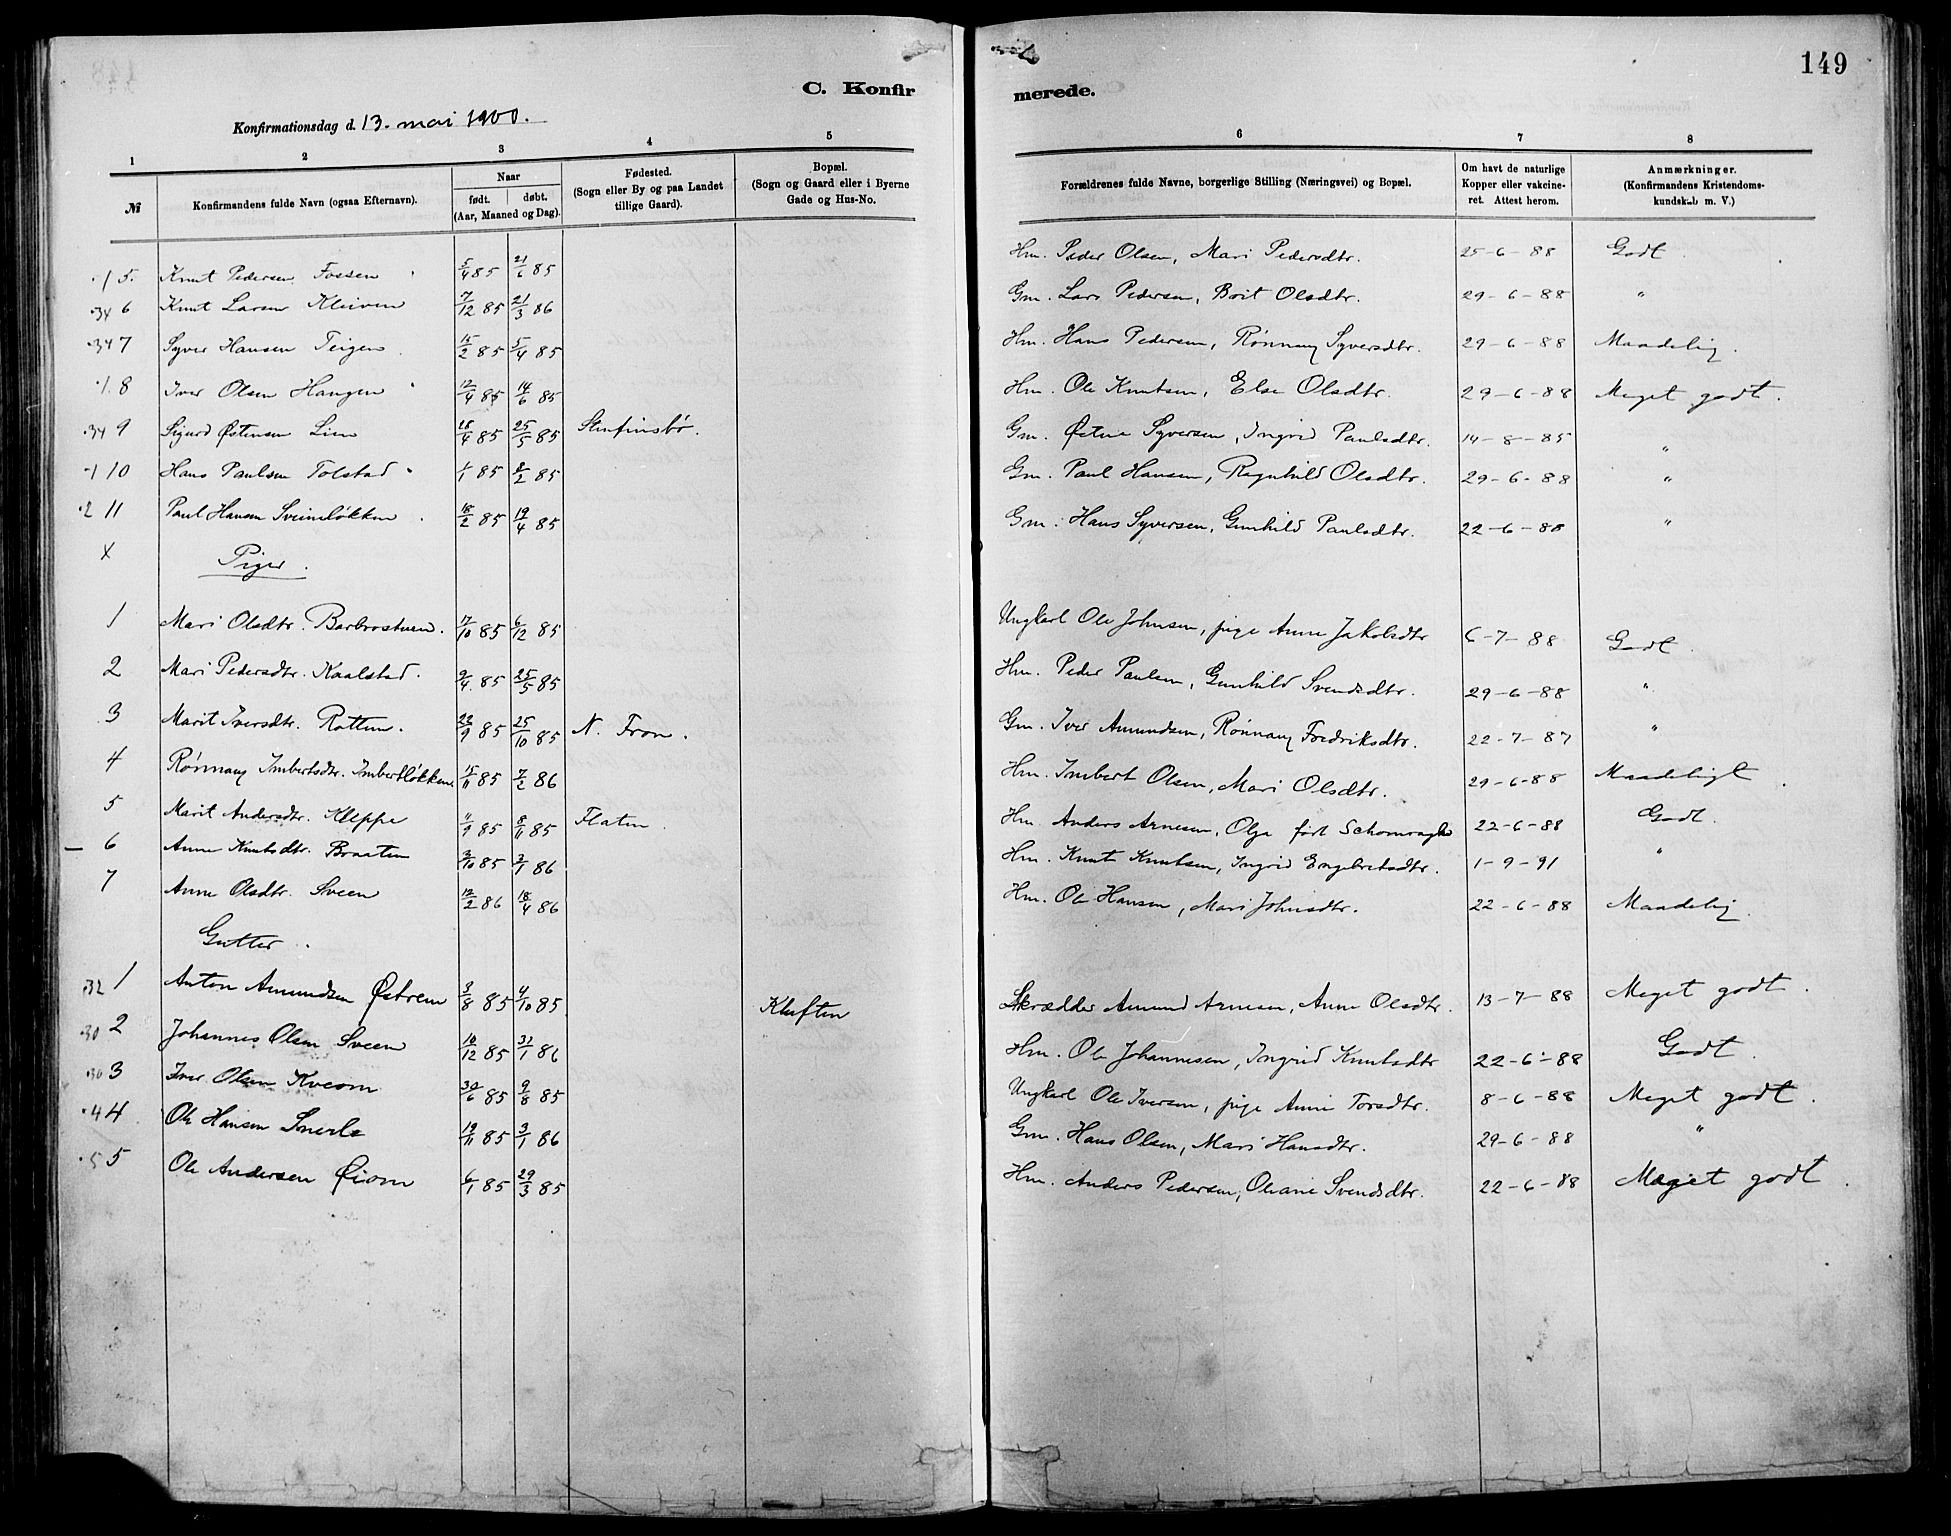 149
C. Konfirmerede.
Konfirmationsdag d. 13. mai 1900.
1 2 3 4 5 6 7 8
№ Konfirmandens fulde Navn (ogsaa Efternavn). Naar født. døbt. (Aar, Maaned og Dag). Fødested. (Sogn eller By og paa Landet tillige Gaard). Bopæl. (Sogn og Gaard eller i Byerne Gade og Hus-No. Forældrenes fulde Navne, borgerlige Stilling (Næringsvei) og Bopæl. Om havt de naturlige Kopper eller vakcineret. Attest herom. Anmærkninger. (Konfirmandens Kristendomskundskab m. V.)
5. Knut Pedersen Fossen 5/4 85 21/6 85 Hm. Peder Olsen, Mari Pedersdtr. 25-6-88 Godt
34 6 Knut Larsen Kleiven 7/12 85 21/3 86 Gm. Lars Pedersen, Brit Olsdtr. 29-6-88 "
34 7 Syver Hansen Teigen 15/2 85 5/4 85 Hm. Hans Pedersen, Rønnaug Syversdtr. 29-6-88 Maadelig.
1 8 Iver Olsen Haugen 12/4 85 14/6 85 Hm. Ole Knutsen, Else Olsdtr. 29-6-88 Meget godt.
34 9 Sigurd Østensen Lien 28/4 85 25/5 85 Stenfinsbø. Gm. Østen Syversen, Ingrid Paulsdtr. 14-8-85 "
1 10 Hans Paulsen Tolstad 1/1 85 2/2 85 Gm. Paul Hansen, Ragnhild Olsdtr. 29-6-88 "
2 11 Paul Hansen Sveineløkken 18/2 85 19/4 85 Gm. Hans Syversen, Gunhild Paulsdtr. 22-6-88 "
x Piger.
1 Mari Olsdtr. Barbrostuen. 17/10 85 6/12 85 Ungkarl Ole Johnsen, pige Anne Jakobsdtr 6-7-88 Godt.
2 Mari Pedersdtr. Kaalstad. 9/4 85 25/5 85 Hm. Peder Paulsen, Gunhild Svendsdtr. 29-6-88 "
3 Marit Iversdtr. Rotten. 22/9 85 25/10 85 N. Fron. Gm. Iver Amundsen, Rønnaug Fredriksdtr. 22-7-87 "
4 Rønnaug Imbertsdtr. Imbertløkken 15/11 85 7/2 86 Hm. Imbert Olsen, Mari Olsdtr. 29-6-88 Maadeligt
5 Marit Andersdtr. Kleppe 11/9 85 8/11 85 Flaten. Hm. Anders Arnesen, Olga født 22-6-88 Godt.
6 Anne Knutsdtr. Braaten 3/10 85 3/1 86 Hm. Knut Knutsen, Ingrid Engebretsdtr. 1-9-91 "
7 Anne Olsdtr. Sveen 12/2 86 18/4 86 Hm. Ole Hansen, Mari Johnsdtr. 22-6-88 Maadelig.
Gutter.
32 1 Anton Amundsen Østrem 3/8 85 4/10 85 Kluften Skrædder Amund Arnesen, Anne Olsdtr. 13-7-88 Meget godt.
30 2 Johannes Olsen Sveen 10/12 85 31/1 86 Hm. Ole Johannesen, Ingrid Knutsdtr 22-6-88 Godt.
30 3 Iver Olsen Kveom 30/6 85 9/8 85 Ungkarl Ole Iversen, pige Anne Torsdtr. 8-6-88 Meget godt.
4 4 Ole Hansen Snerle 19/11 85 3/1 86 Gm. Hans Olsen, Mari Hansdtr. 29-6-88 "
5 5 Ole Andersen Øiom 6/1 85 29/3 85 Hm. Anders Pedersen, Oleane Svendsdtr. 22-6-88 Meget godt.